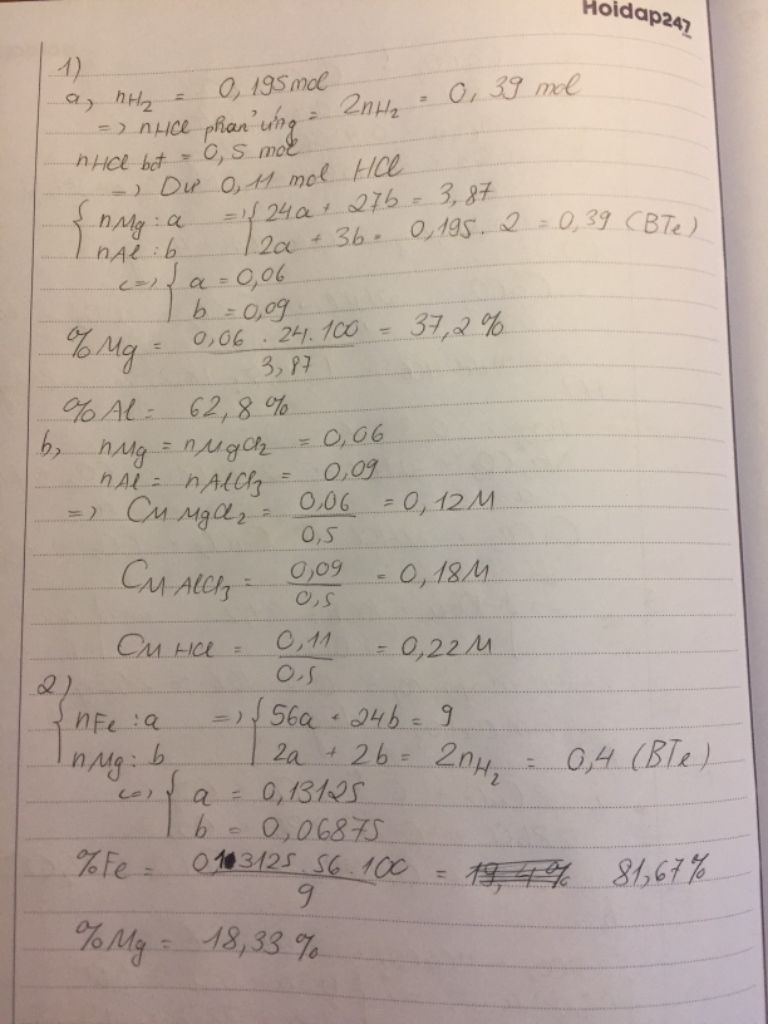 Hoidap247
1)
a, nH2 = 0,195 mol
=> nHCl phản ứng = 2nH2 = 0,39 mol
nHCl bđ = 0,5 mol
=> Dư 0,11 mol HCl
{ nMg : a => { 24a + 27b = 3,87
nAl : b 2a + 3b = 0,195 . 2 = 0,39 (BTe)
<=> { a = 0,06
b = 0,09
%Mg = 0,06 . 24 . 100 / 3,87 = 37,2 %
%Al = 62,8 %
b, nMg = nMgCl2 = 0,06
nAl = nAlCl3 = 0,09
=> CM MgCl2 = 0,06 / 0,5 = 0,12M
CM AlCl3 = 0,09 / 0,5 = 0,18M
CM HCl = 0,11 / 0,5 = 0,22M
2)
{ nFe : a => { 56a + 24b = 9
nMg : b 2a + 2b = 2nH2 = 0,4 (BTe)
<=> { a = 0,13125
b = 0,06875
%Fe = 0,13125 . 56 . 100 / 9 = 19,4% 81,67%
%Mg = 18,33 %